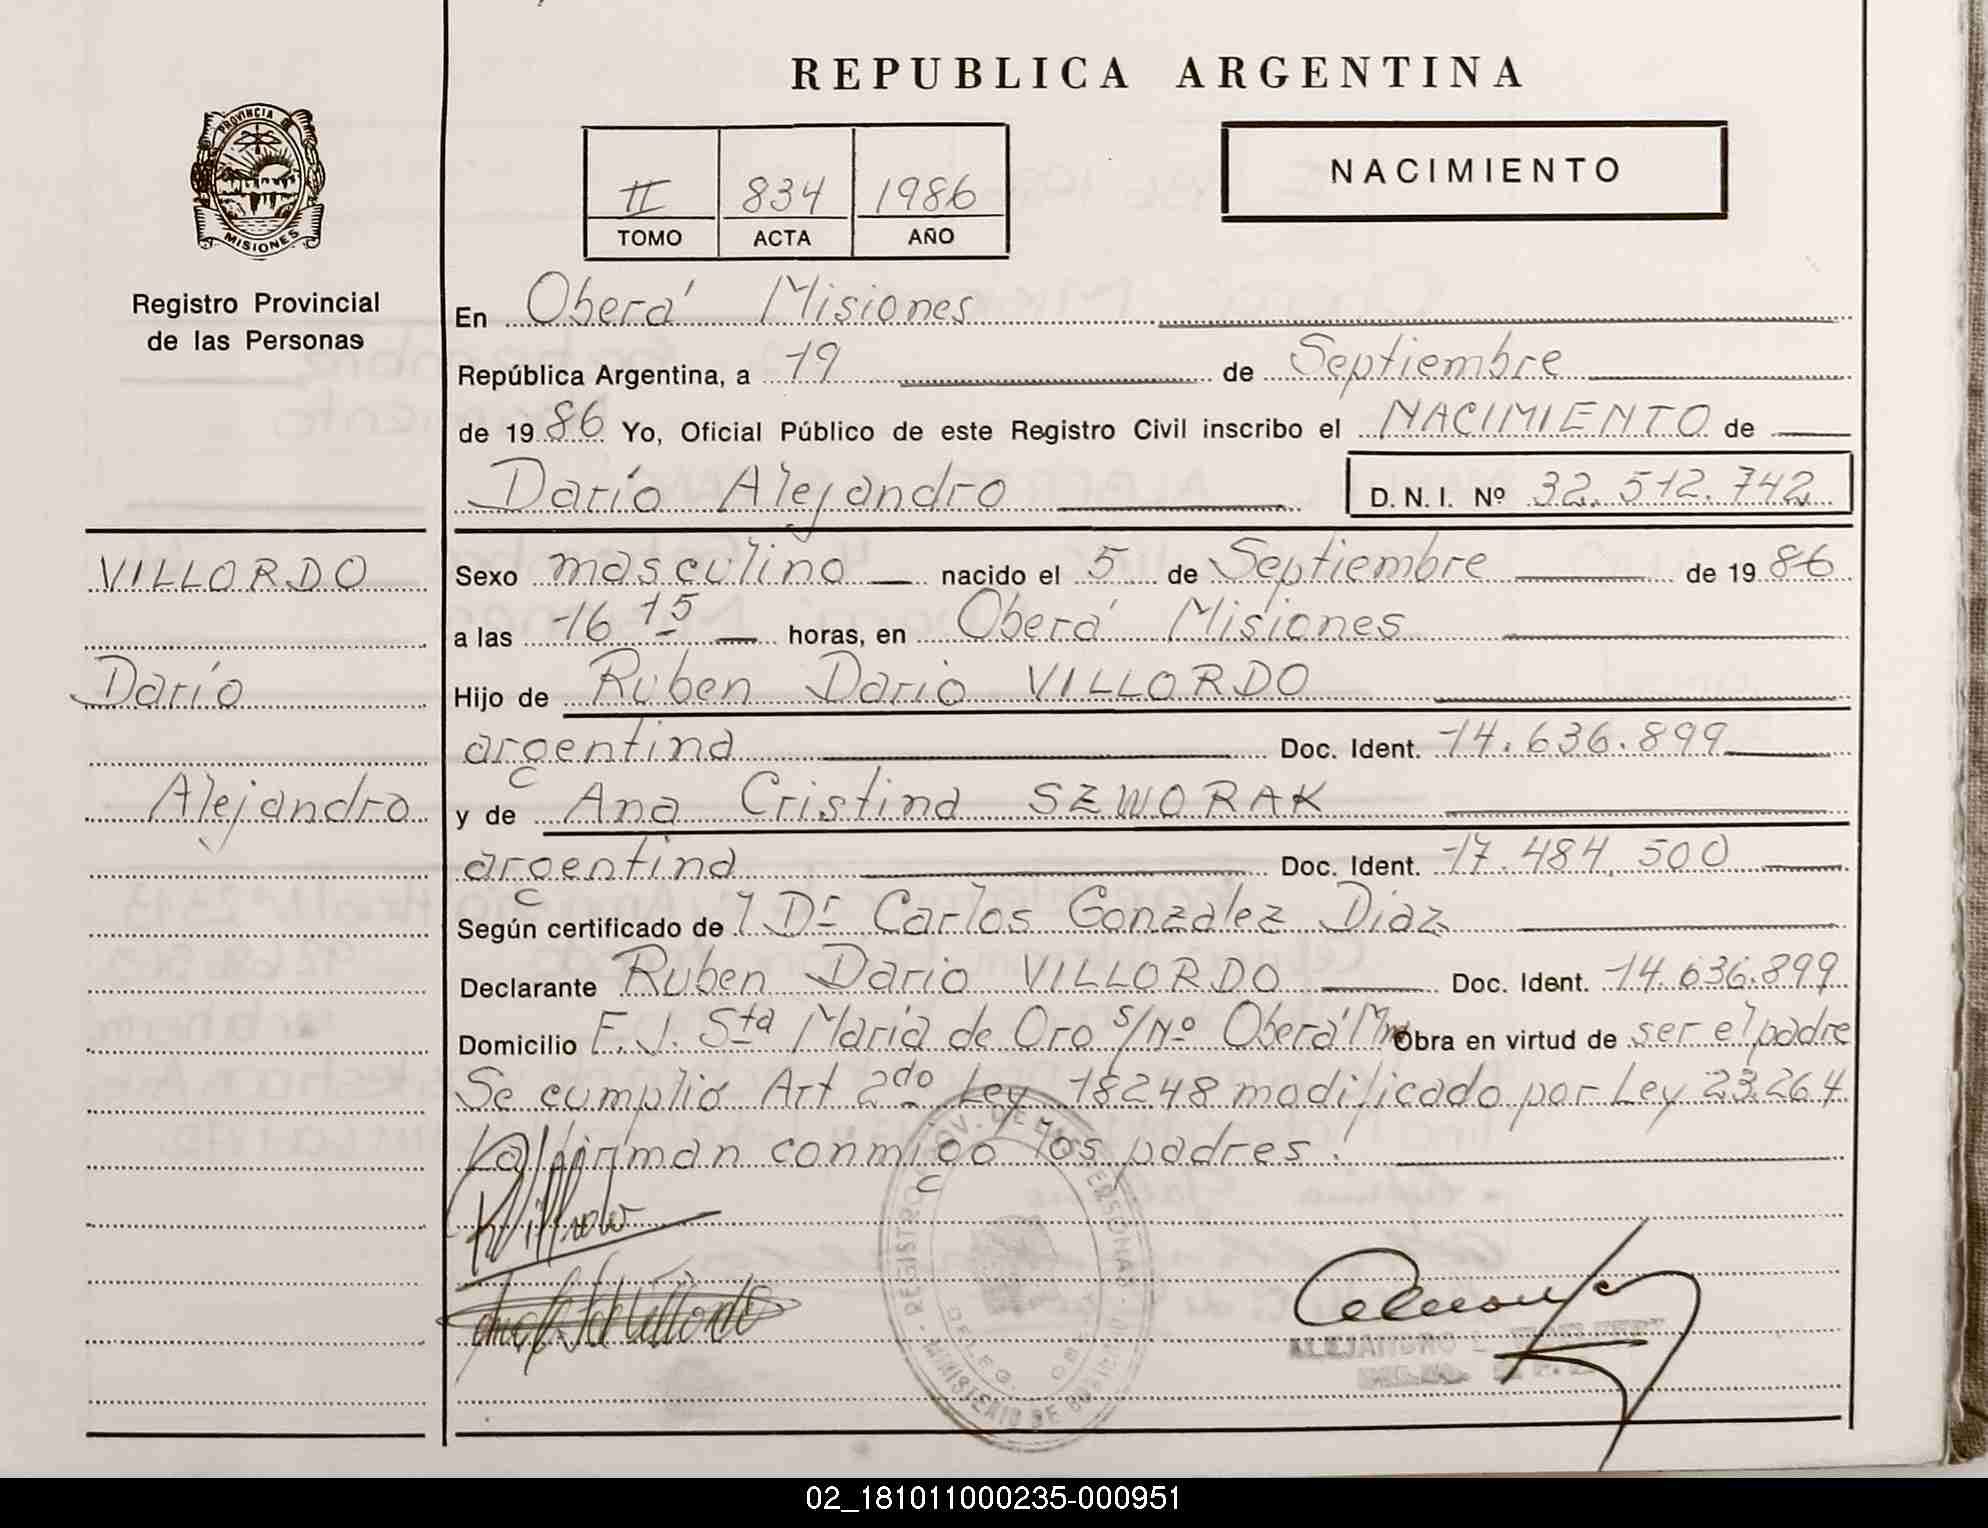 REPUBLICA ARGENTINA
PROVINCIA DE
MISIONES
Registro Provincial
de las Personas
II 834 1986
TOMO ACTA AÑO
NACIMIENTO
En Oberá Misiones
República Argentina, a 19 de Septiembre
de 1986 Yo, Oficial Público de este Registro Civil inscribo el NACIMIENTO de
Darío Alejandro D. N. I. Nº 32.512.742
VILLORDO
Darío
Alejandro
Sexo masculino nacido el 5 de Septiembre de 1986
a las 16 15 horas, en Oberá Misiones
Hijo de Ruben Dario VILLORDO
argentina Doc. Ident. 14.636.899
y de Ana Cristina SZWORAK
argentina Doc. Ident. 17.484.500
Según certificado de Dr Carlos Gonzalez Diaz
Declarante Ruben Dario VILLORDO Doc. Ident. 14.636.899
Domicilio F. J. Sta Maria de Oro s/Nº Oberá Mnes Obra en virtud de ser el padre
Se cumplio Art 2do Ley 18248 modificado por Ley 23.264
firman conmigo los padres.
REGISTRO PROV. DE LAS PERSONAS
MINISTERIO DE GOBIERNO
DELEG. OBERA
02_181011000235-000951